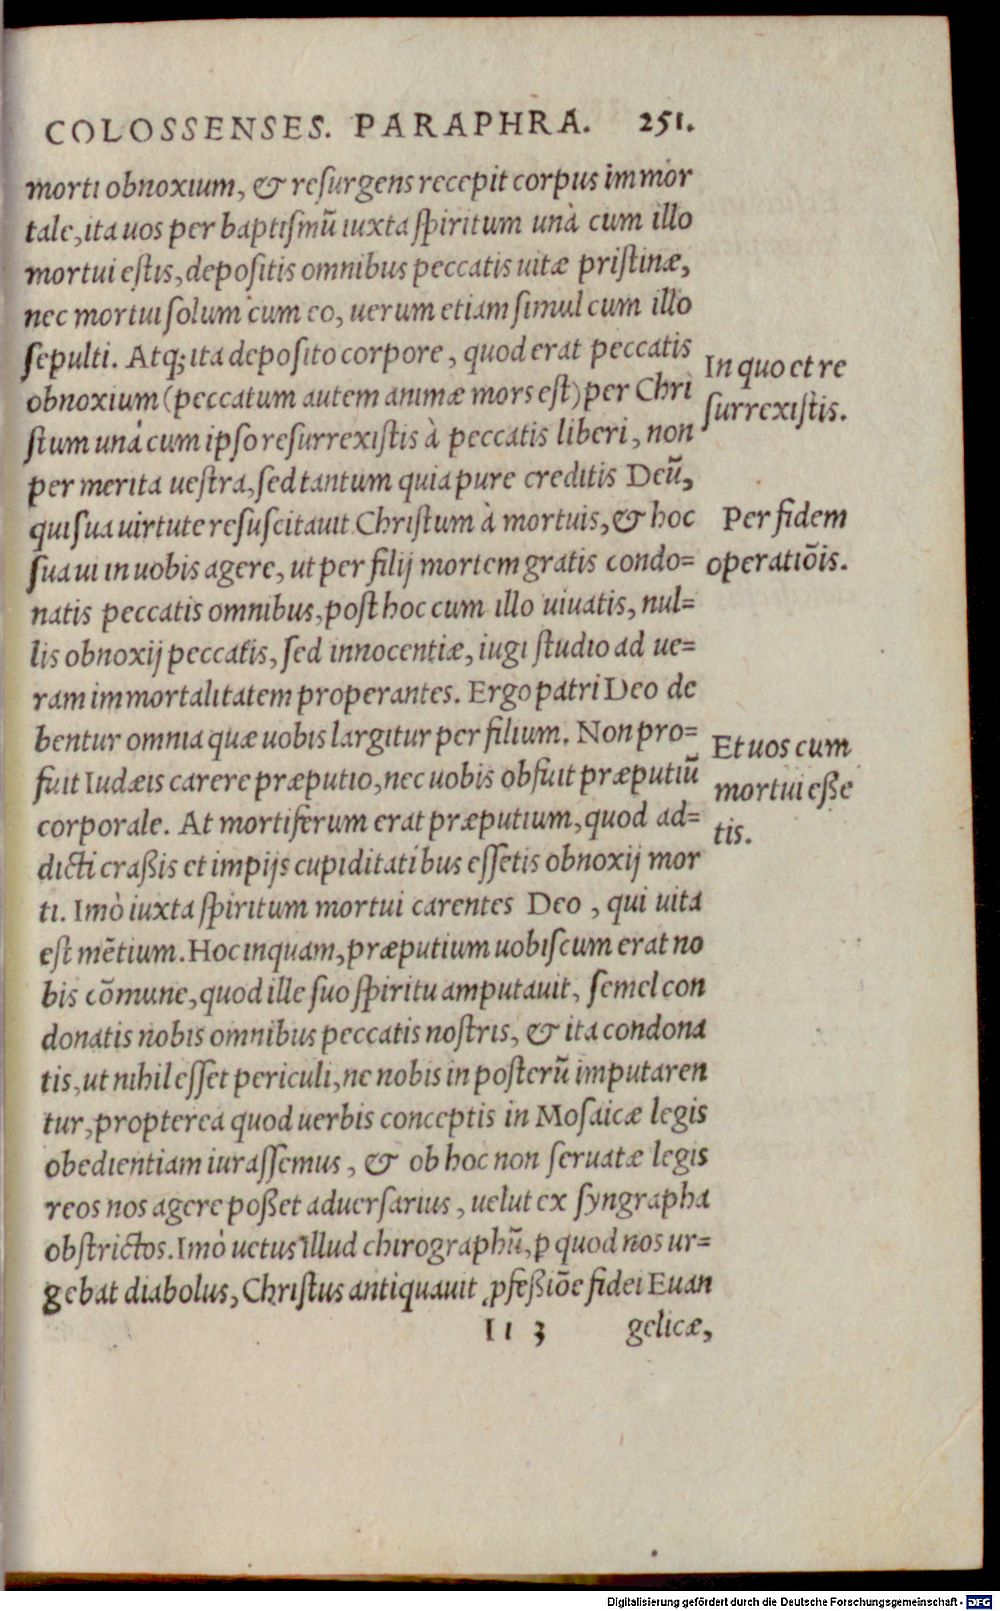 COLOSSENSES. PARAPHRA. 251.
morti obnoxium, & reſurgens recepit corpus immor
tale, ita uos per baptiſmũ iuxta ſpiritum unà cum illo
mortui eſtis, depoſitis omnibus peccatis uitæ priſtinæ,
nec mortui ſolum cum eo, uerum etiam ſimul cum illo
ſepulti. Atq; ita depoſito corpore, quod erat peccatis
obnoxium (peccatum autem animæ mors eſt) per Chri
ſtum unà cum ipſo reſurrexiſtis à peccatis liberi, non
per merita ueſtra, ſed tantum quia pure creditis Deũ,
qui ſua uirtute reſuſcitauit Chriſtum à mortuis, & hoc
ſua ui in uobis agere, ut per filij mortem gratis condo=
natis peccatis omnibus, poſt hoc cum illo uiuatis, nul=
lis obnoxij peccatis, ſed innocentiæ, iugi ſtudio ad ue=
ram immortalitatem properantes. Ergo patri Deo de
bentur omnia quæ uobis largitur per filium. Non pro=
fuit Iudæis carere præputio, nec uobis obfuit præputiũ
corporale. At mortiferum erat præputium, quod ad=
dicti craßis et impijs cupiditatibus eſſetis obnoxij mor
ti. Imò iuxta ſpiritum mortui carentes Deo, qui uita
eſt mẽtium. Hoc inquam, præputium uobiſcum erat no
bis cõmune, quod ille ſuo ſpiritu amputauit, ſemel con
donatis nobis omnibus peccatis noſtris, & ita condona
tis, ut nihil eſſet periculi, ne nobis in poſterũ imputaren
tur, propterea quod uerbis conceptis in Moſaicæ legis
obedientiam iuraſſemus, & ob hoc non ſeruatæ legis
reos nos agere poßet aduerſarius, uelut ex ſyngrapha
obſtrictos. Imò uetus illud chirographũ, ꝑ quod nos ur=
gebat diabolus, Chriſtus antiquauit ꝓfeßiõe fidei Euan
II 3 gelicæ,
In quo et re
ſurrexiſtis.
Per fidem
operatiõis.
Et uos cum
mortui eße
tis.
Digitalisierung gefördert durch die Deutsche Forschungsgemeinschaft - DFG